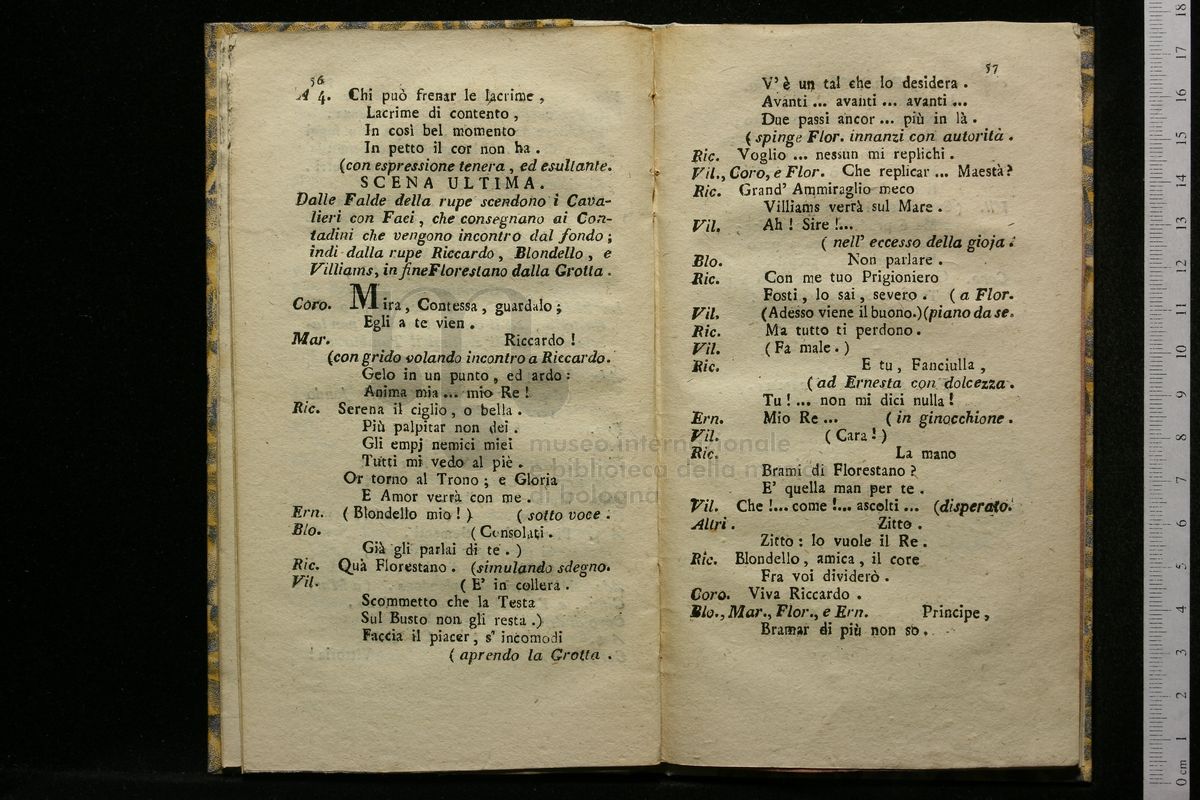 56
A 4. Chi può frenar le lacrime ,
Lacrime di contento ,
In così bel momento
In petto il cor non ha .
(con espressione tenera , ed esultante.
SCENA ULTIMA.
Dalle Falde della rupe scendono i Cava-
lieri con Faci , che consegnano ai Con-
tadini che vengono incontro dal fondo ;
indi dalla rupe Riccardo , Blondello , e
Villiams, in fine Florestano dalla Grotta .
Coro. Mira, Contessa, guardalo ;
Egli a te vien .
Mar. Riccardo !
(con grido volando incontro a Riccardo.
Gelo in un punto , ed ardo :
Anima mia ... mio Re !
Ric. Serena il ciglio, o bella .
Più palpitar non dei .
Gli empj nemici miei
Tutti mi vedo al piè .
Or torno al Trono ; e Gloria
E Amor verrà con me .
Ern. ( Blondello mio ! ) ( sotto voce .
Blo. ( Consolati .
Già gli parlai di te . )
Ric. Quà Florestano . (simulando sdegno.
Vil. ( E' in collera .
Scommetto che la Testa
Sul Busto non gli resta .)
Faccia il piacer, s' incomodi
( aprendo la Grotta .
57
V' è un tal che lo desidera .
Avanti ... avanti ... avanti ...
Due passi ancor ... più in là .
( spinge Flor. innanzi con autorità .
Ric. Voglio ... nessun mi replichi .
Vil., Coro, e Flor. Che replicar ... Maestà?
Ric. Grand' Ammiraglio meco
Villiams verrà sul Mare .
Vil. Ah ! Sire !...
( nell' eccesso della gioja .
Blo. Non parlare .
Ric. Con me tuo Prigioniero
Fosti , lo sai , severo . ( a Flor.
Vil. (Adesso viene il buono.)(piano da se.
Ric. Ma tutto ti perdono .
Vil. ( Fa male . )
Ric. E tu , Fanciulla ,
( ad Ernesta con dolcezza .
Tu ! ... non mi dici nulla !
Ern. Mio Re ... ( in ginocchione .
Vil. ( Cara ! )
Ric. La mano
Brami di Florestano ?
E' quella man per te .
Vil. Che !... come !... ascolti ... (disperato.
Altri . Zitto .
Zitto : lo vuole il Re .
Ric. Blondello , amica , il core
Fra voi dividerò .
Coro. Viva Riccardo .
Blo., Mar., Flor., e Ern. Principe ,
Bramar di più non so .
museo internazionale
e biblioteca della musica
di bologna
0 cm 1 2 3 4 5 6 7 8 9 10 11 12 13 14 15 16 17 18